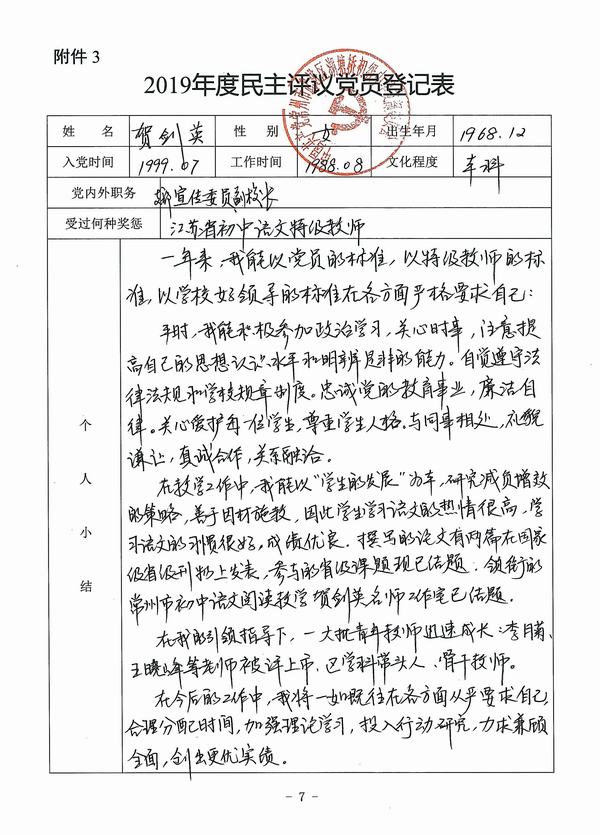 附件 3
2019年度民主评议党员登记表
姓 名 贺剑英 性 别 女 出生年月 1968.12
入党时间 1999.07 工作时间 1988.08 文化程度 本科
党内外职务 宣传委员副校长
受过何种奖惩 江苏省初中语文特级教师
个人小结
一年来,我能以党员的标准,以特级教师的标
准,以学校好领导的标准在各方面严格要求自己:
平时,我能积极参加政治学习,关心时事,注意提
高自己的思想认识水平和明辨是非的能力。自觉遵守法
律法规和学校规章制度。忠诚党的教育事业,廉洁自
律。关心爱护每一位学生,尊重学生人格。与同事相处,礼貌
谦让,真诚合作,关系融洽。
在教学工作中,我能以“学生的发展”为本,研究减负增效
的策略,善于因材施教,因此学生学习语文的热情很高,学
习语文的习惯很好,成绩优良。撰写的论文有两篇在国家
级省级刊物上发表,参与的省级课题现已结题。领衔的
常州市初中语文阅读教学贺剑英名师工作室已结题。
在我的引领指导下,一大批青年教师迅速成长:李月
王晓峰等老师被评上市、区学科带头人、骨干教师。
在今后的工作中,我将一如既往在各方面从严要求自己,
合理分配时间,加强理论学习,投入行动研究,力求兼顾
全面,创出更优实绩。
- 7 -